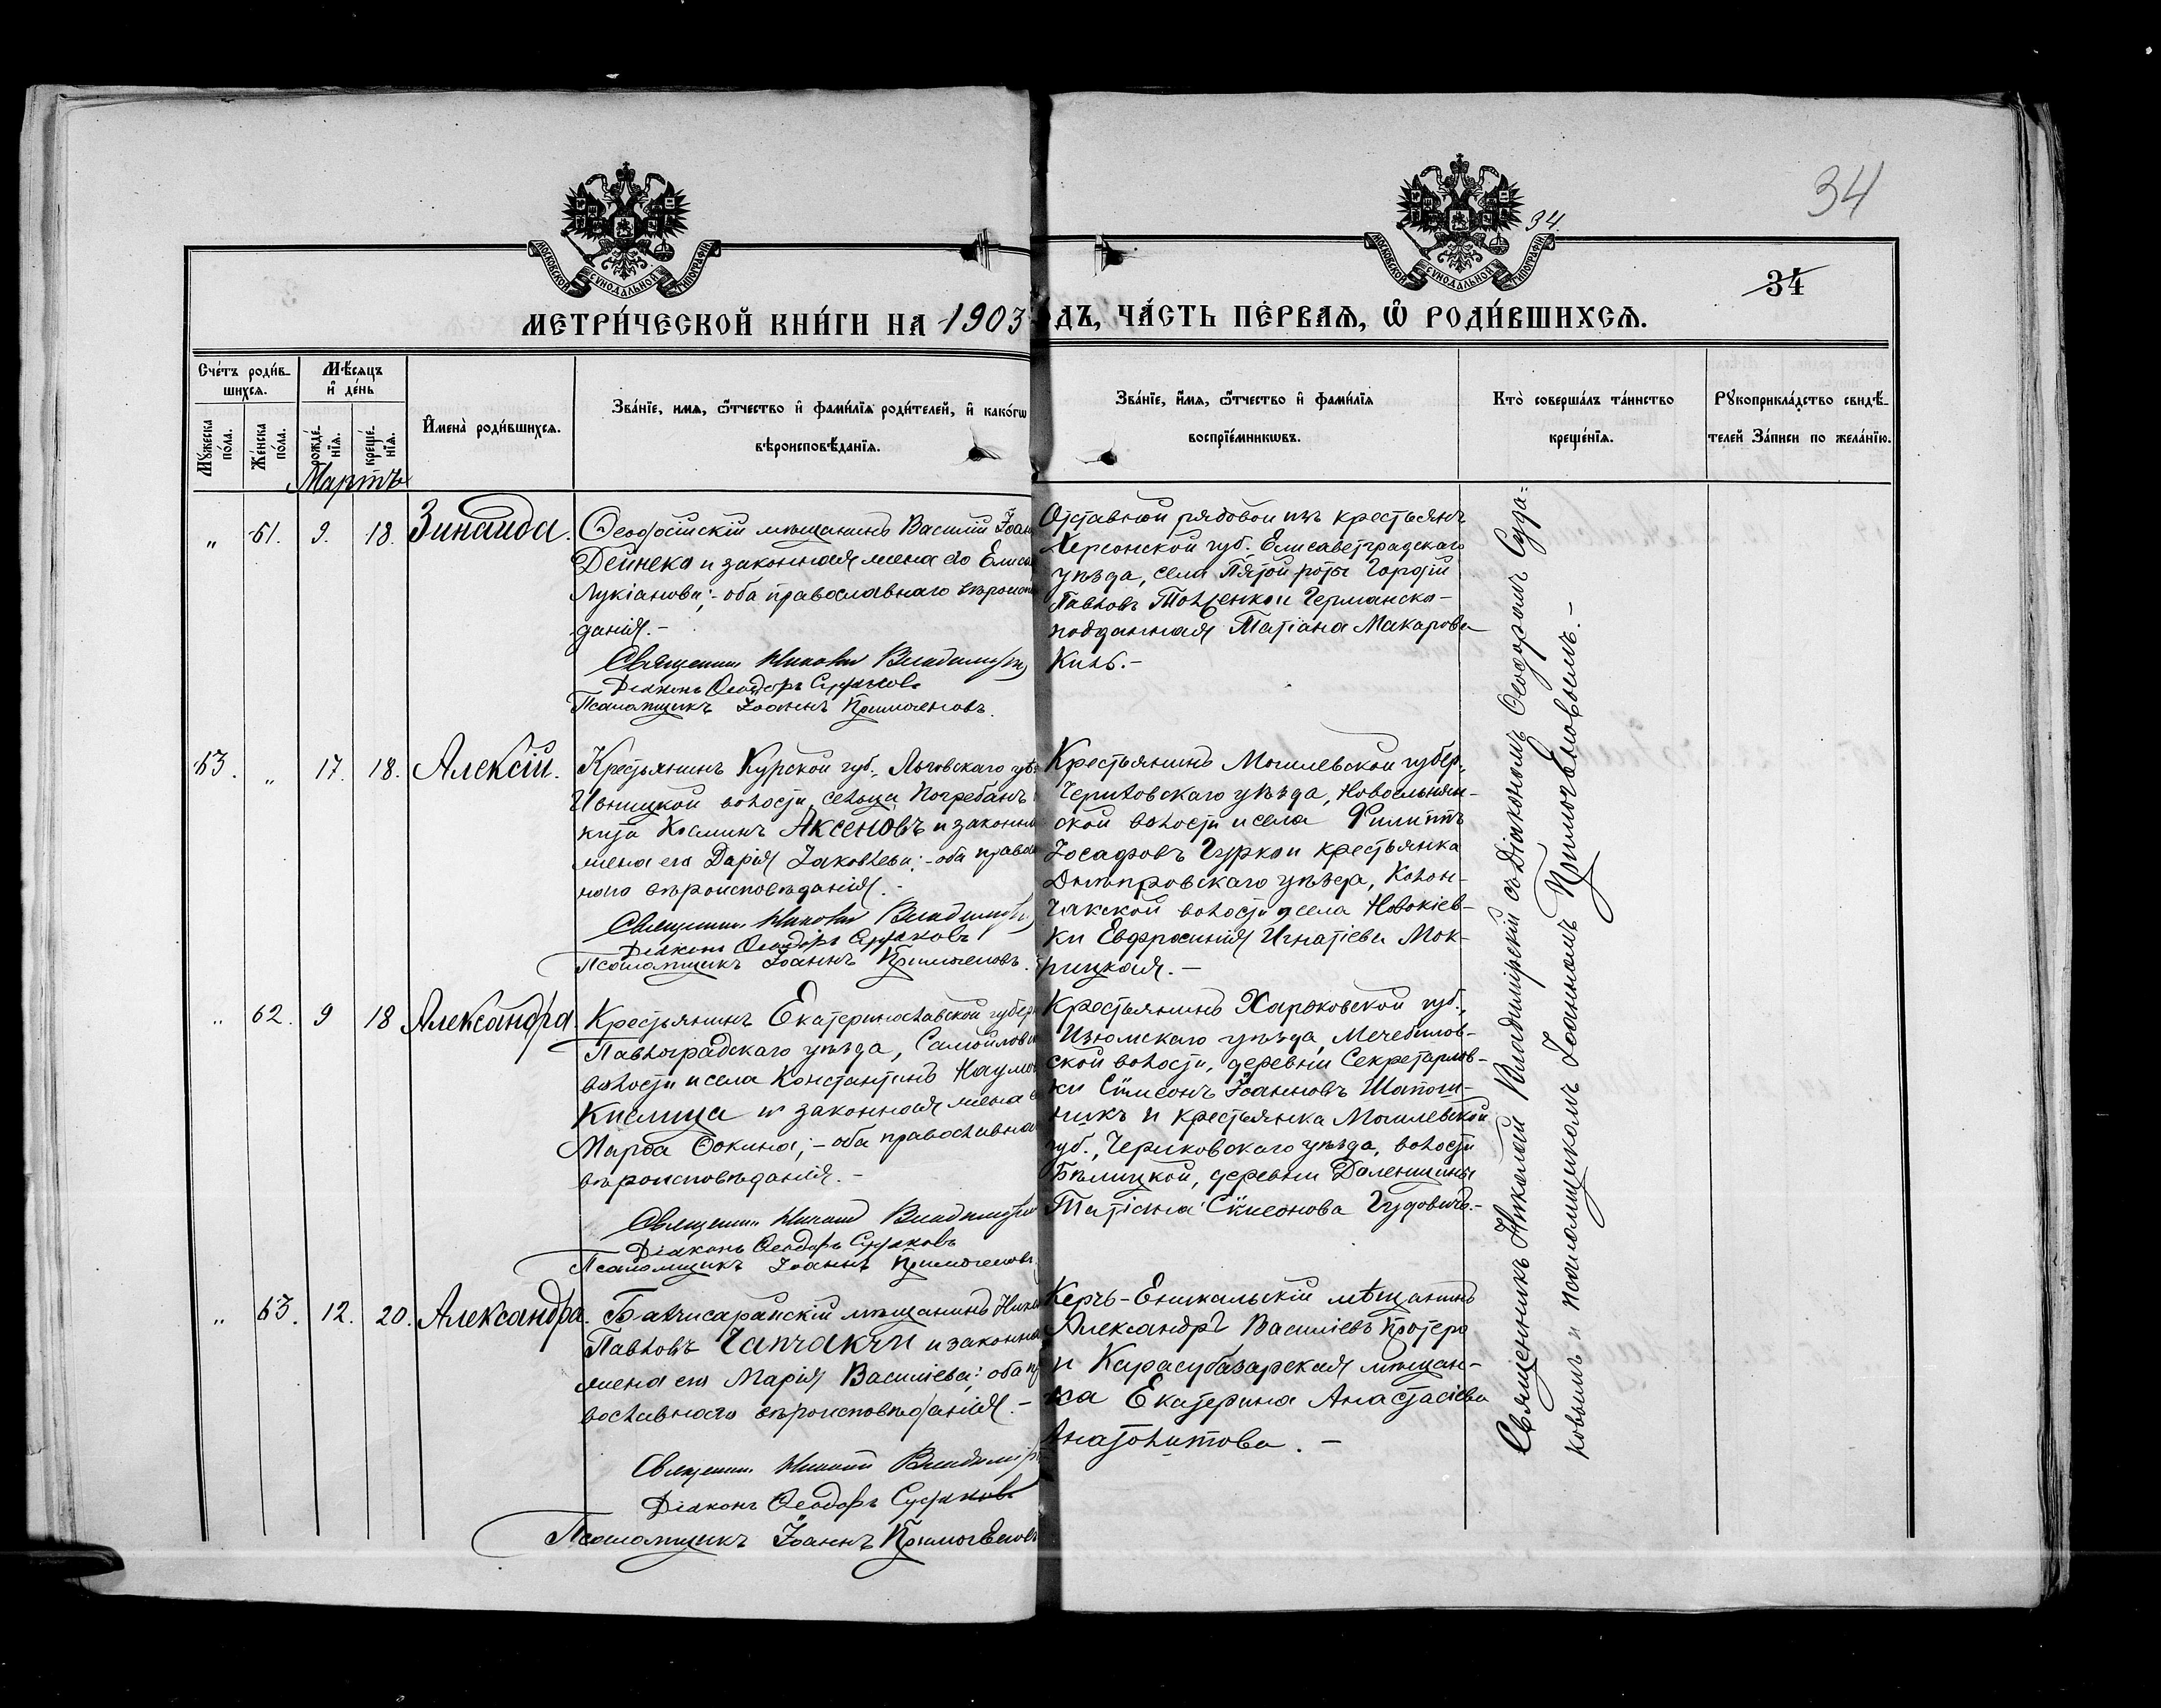 34
34.
34
МОСКОВСКОЙ СѴНОДАЛЬНОЙ ТИПОГРАФІИ
МОСКОВСКОЙ СѴНОДАЛЬНОЙ ТИПОГРАФІИ
МЕТРИ́ЧЕСКОЙ КНИ́ГИ НА 1903 ДЪ, ЧА́СТЬ ПЕ́РВАЯ, Ѡ РОДИ́ВШИХСЯ.
Сче́тъ роди́в-
шихся.
Мѣ́сяцъ
и де́нь
Му́жеска
по́ла.
Же́нска
по́ла.
рожде́-
нїя.
креще́-
нїя.
Имена̀ роди́вшихся.
Зва́нїе, имя, ѻ҆́тчество и фами́лїя роди́телей, и како́гѡ
вѣроисповѣ́данїя.
Зва́нїе, и́мя, ѻ҆́тчество и фами́лїя
воспрїе́мниковъ.
Кто̀ соверша́лъ та́инство
креще́нїя.
Рукоприкла́дство свидѣ́-
телей За́писи по жела́нїю.
Мартъ
" 61. 9. 18. Зинаида.
Ѳеодосійскій мѣщанинъ Василій Іоан
Дейнека и законная жена его Елиса
Лукіанова; - оба православнаго вѣроиспо
данія. -
Священник Николай Владимірскій
Діаконъ Ѳеодоръ Судаковъ
Псаломщикъ Іоаннъ Примогеновъ.
Отставной рядовой изъ крестьянъ
Херсонской губ. Елисаветградскаго
уѣзда, села Пятой роты Гордій
Павловъ и Германско-
подданная Татіана Макарова
Киль. -
63. " 17. 18. Алексій.
Крестьянинъ Курской губ., Льговскаго уѣз
Ивницкой волости, сельца Погребанъ
кита Косминъ Аксеновъ и законн
жена его Дарія Іаковлева; - оба правос
наго вѣроисповѣданія. -
Священник Николай Владимірскій
Діаконъ Ѳеодоръ Судаковъ
Псаломщикъ Іоаннъ Примогеновъ.
Крестьянинъ Могилевской губер.,
Чериковскаго уѣзда, Новоельнян-
ской волости и села Филиппъ
Іосафовъ Гурко и крестьянка
Днѣпровскаго уѣзда, Колон-
чакской волости села Новокіев-
ки Евфросинія Игнатіева Мок-
рицкая. -
" 62. 9 18 Александра
Крестьянинъ Екатеринославской губерн
Павлоградскаго уѣзда, Самойловс
волости и села Константинъ Наумо
Кислица и законная жена е
Марѳа Ѳокина; - оба православна
вѣроисповѣданія. -
Священник Николай Владимірскій
Діаконъ Ѳеодоръ Судаковъ
Псаломщикъ Іоаннъ Примогеновъ
Крестьянинъ Харьковской губ.,
Изюмскаго уѣзда, Мечебилов-
ской волости, деревни Секретарев-
ки Сѵмеонъ Іоанновъ Шапош-
никъ и крестьянка Могилевской
губ., Чериковскаго уѣзда, волости
Бѣлицкой, деревни Даленщины
Татіана Сѵмеонова Гудовичъ. -
" 63. 12. 20. Александра.
Бахчисарайскій мѣщанинъ Нико
Павловъ Чапчакчи и законна
жена его Марія Василіева; оба пр
вославнаго вѣроисповѣданія. -
Священник Николай Владимір
Діаконъ Ѳеодоръ Судаковъ
Псаломщикъ Іоаннъ Примогеновъ
Керчь-Еникальскій мѣщанинъ
Александръ Василіевъ Протера
и Карасубазарская мѣщан-
ка Екатерина Анастасіева
Анатолитова. -
Священникъ Николай Владимірскій съ діакономъ Ѳеодоромъ Суда-
ковымъ и псаломщикомъ Іоанномъ Примогеновымъ. -